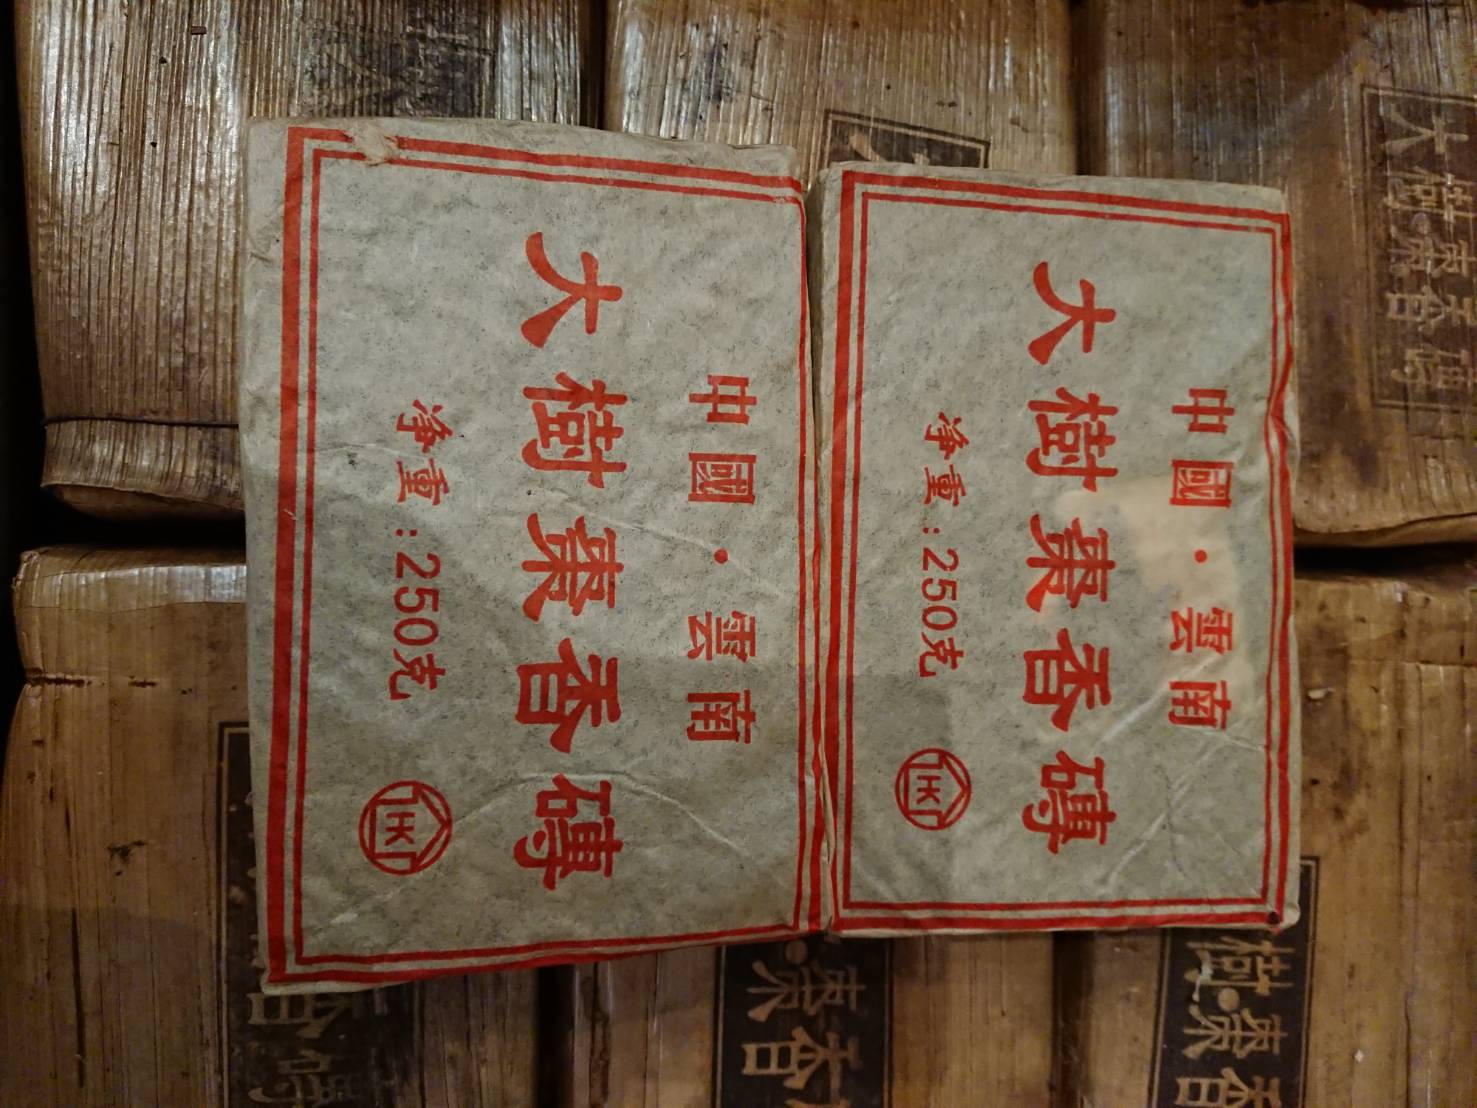 中國·雲南
大樹棗香磚
净重:250克
HK
中國·雲南
大樹棗香磚
净重:250克
HK
大樹·棗香磚
香磚
棗香
樹·棗香